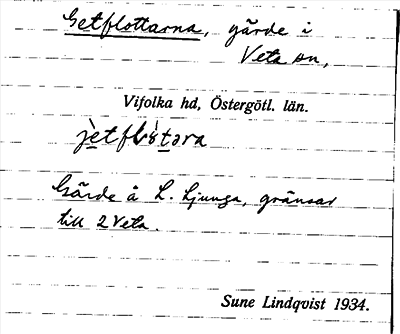 Getflottarna, gärde i
Veta sn,
Vifolka hd, Östergötl. län.
jètflɔ̀təra
Gärde å L. Ljunga, gränsar
till 2 Veta.
Sune Lindqvist 1934.